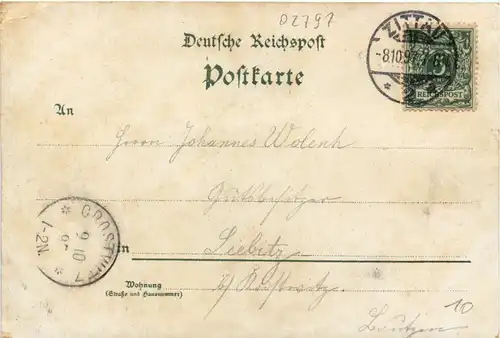 02797
Deutsche Reichspost
Postkarte
ZITTAU
-8.10.97
5
REICHSPOST
An
Herrn Johannes
Gutsbesitzer
in
b/
Bautzen
10
Wohnung
(Straße und Hausnummer)
9 10
97
1-2N.